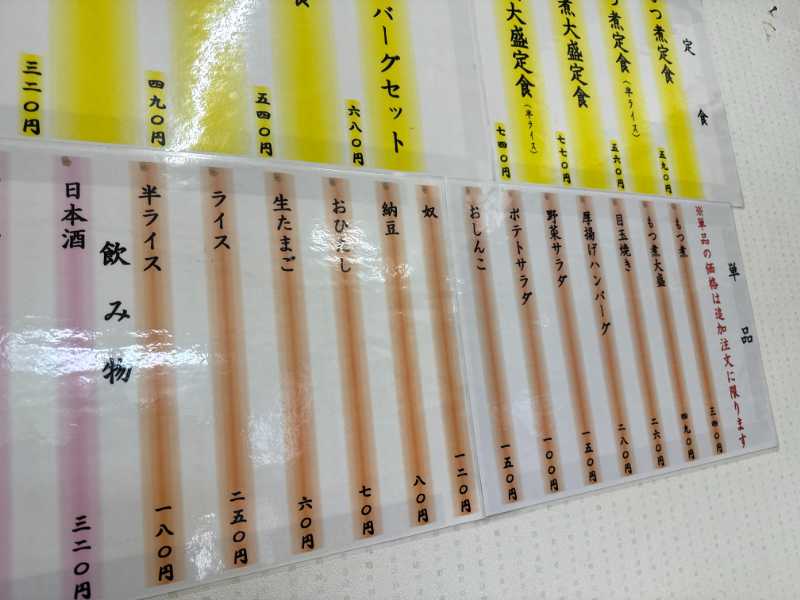 定食
もつ煮定食 五九〇円
つ煮定食(半ライス) 五六〇円
煮大盛定食 七七〇円
大盛定食(半ライス) 七四〇円
バーグセット 六八〇円
食 五四〇円
四九〇円
三二〇円
単品
※単品の価格は追加注文に限ります
もつ煮 三四〇円
もつ煮大盛 四九〇円
目玉焼き 二六〇円
厚揚げハンバーグ 二八〇円
野菜サラダ 一五〇円
ポテトサラダ 一〇〇円
おしんこ 一五〇円
奴 一二〇円
納豆 八〇円
おひたし 七〇円
生たまご 六〇円
ライス 二五〇円
半ライス 一八〇円
飲み物
日本酒 三二〇円